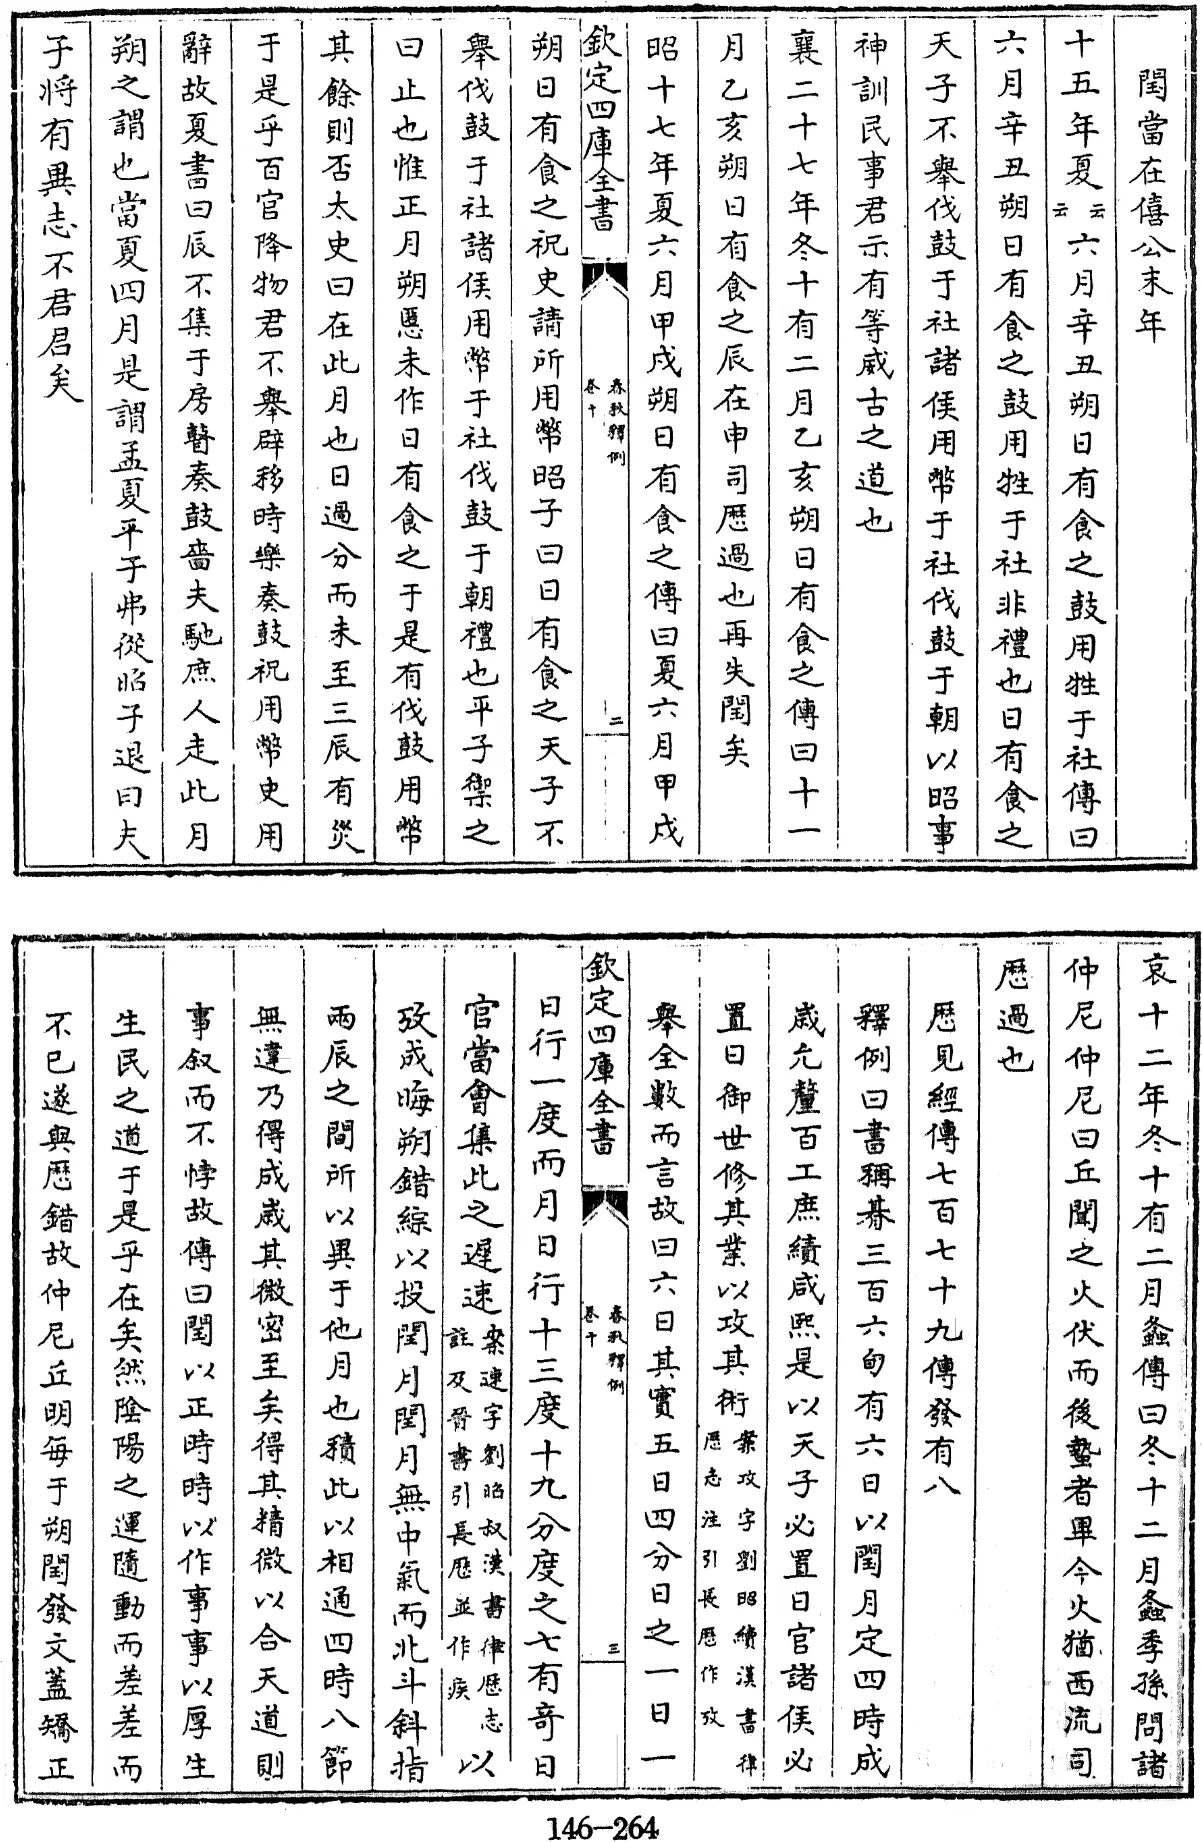 閏當在僖公末年
十五年夏云云六月辛丑朔日有食之鼓用牲于社傳曰
六月辛丑朔日有食之鼓用牲于社非禮也日有食之
天子不舉伐鼓于社諸侯用幣于社伐鼓于朝以昭事
神訓民事君示有等威古之道也
襄二十七年冬十有二月乙亥朔日有食之傳曰十一
月乙亥朔日有食之辰在申司歴過也再失閏矣
昭十七年夏六月甲戌朔日有食之傳曰夏六月甲戌
欽定四庫全書
春秋釋例
卷十
二
朔日有食之祝史請所用幣昭子曰日有食之天子不
舉伐鼓于社諸侯用幣于社伐鼓于朝禮也平子禦之
曰止也惟正月朔慝未作日有食之于是有伐鼓用幣
其餘則否太史曰在此月也日過分而未至三辰有災
于是乎百官降物君不舉辟移時樂奏鼓祝用幣史用
辭故夏書曰辰不集于房瞽奏鼓嗇夫馳庶人走此月
朔之謂也當夏四月是謂孟夏平子弗從昭子退曰夫
子將有異志不君君矣
哀十二年冬十有二月螽傳曰冬十二月螽季孫問諸
仲尼仲尼曰丘聞之火伏而後蟄者畢今火猶西流司
歴過也
歴見經傳七百七十九傳發有八
釋例曰書稱朞三百六旬有六日以閏月定四時成
歲允釐百工庶績咸熙是以天子必置日官諸侯必
置日御世修其業以攻其術案攻字劉昭續漢書律
歴志注引長歴作攷
舉全數而言故曰六日其實五日四分日之一日一
欽定四庫全書
春秋釋例
卷十
三
日行一度而月日行十三度十九分度之七有奇日
官當會集此之遲速案速字劉昭叔漢書律歴志
註及晉書引長歴並作疾以
攷成晦朔錯綜以投閏月閏月無中氣而北斗斜指
兩辰之間所以異于他月也積此以相通四時八節
無違乃得成歲其微密至矣得其精微以合天道則
事叙而不悖故傳曰閏以正時時以作事事以厚生
生民之道于是乎在矣然陰陽之運隨動而差差而
不已遂與歴錯故仲尼丘明每于朔閏發文蓋矯正
146-264